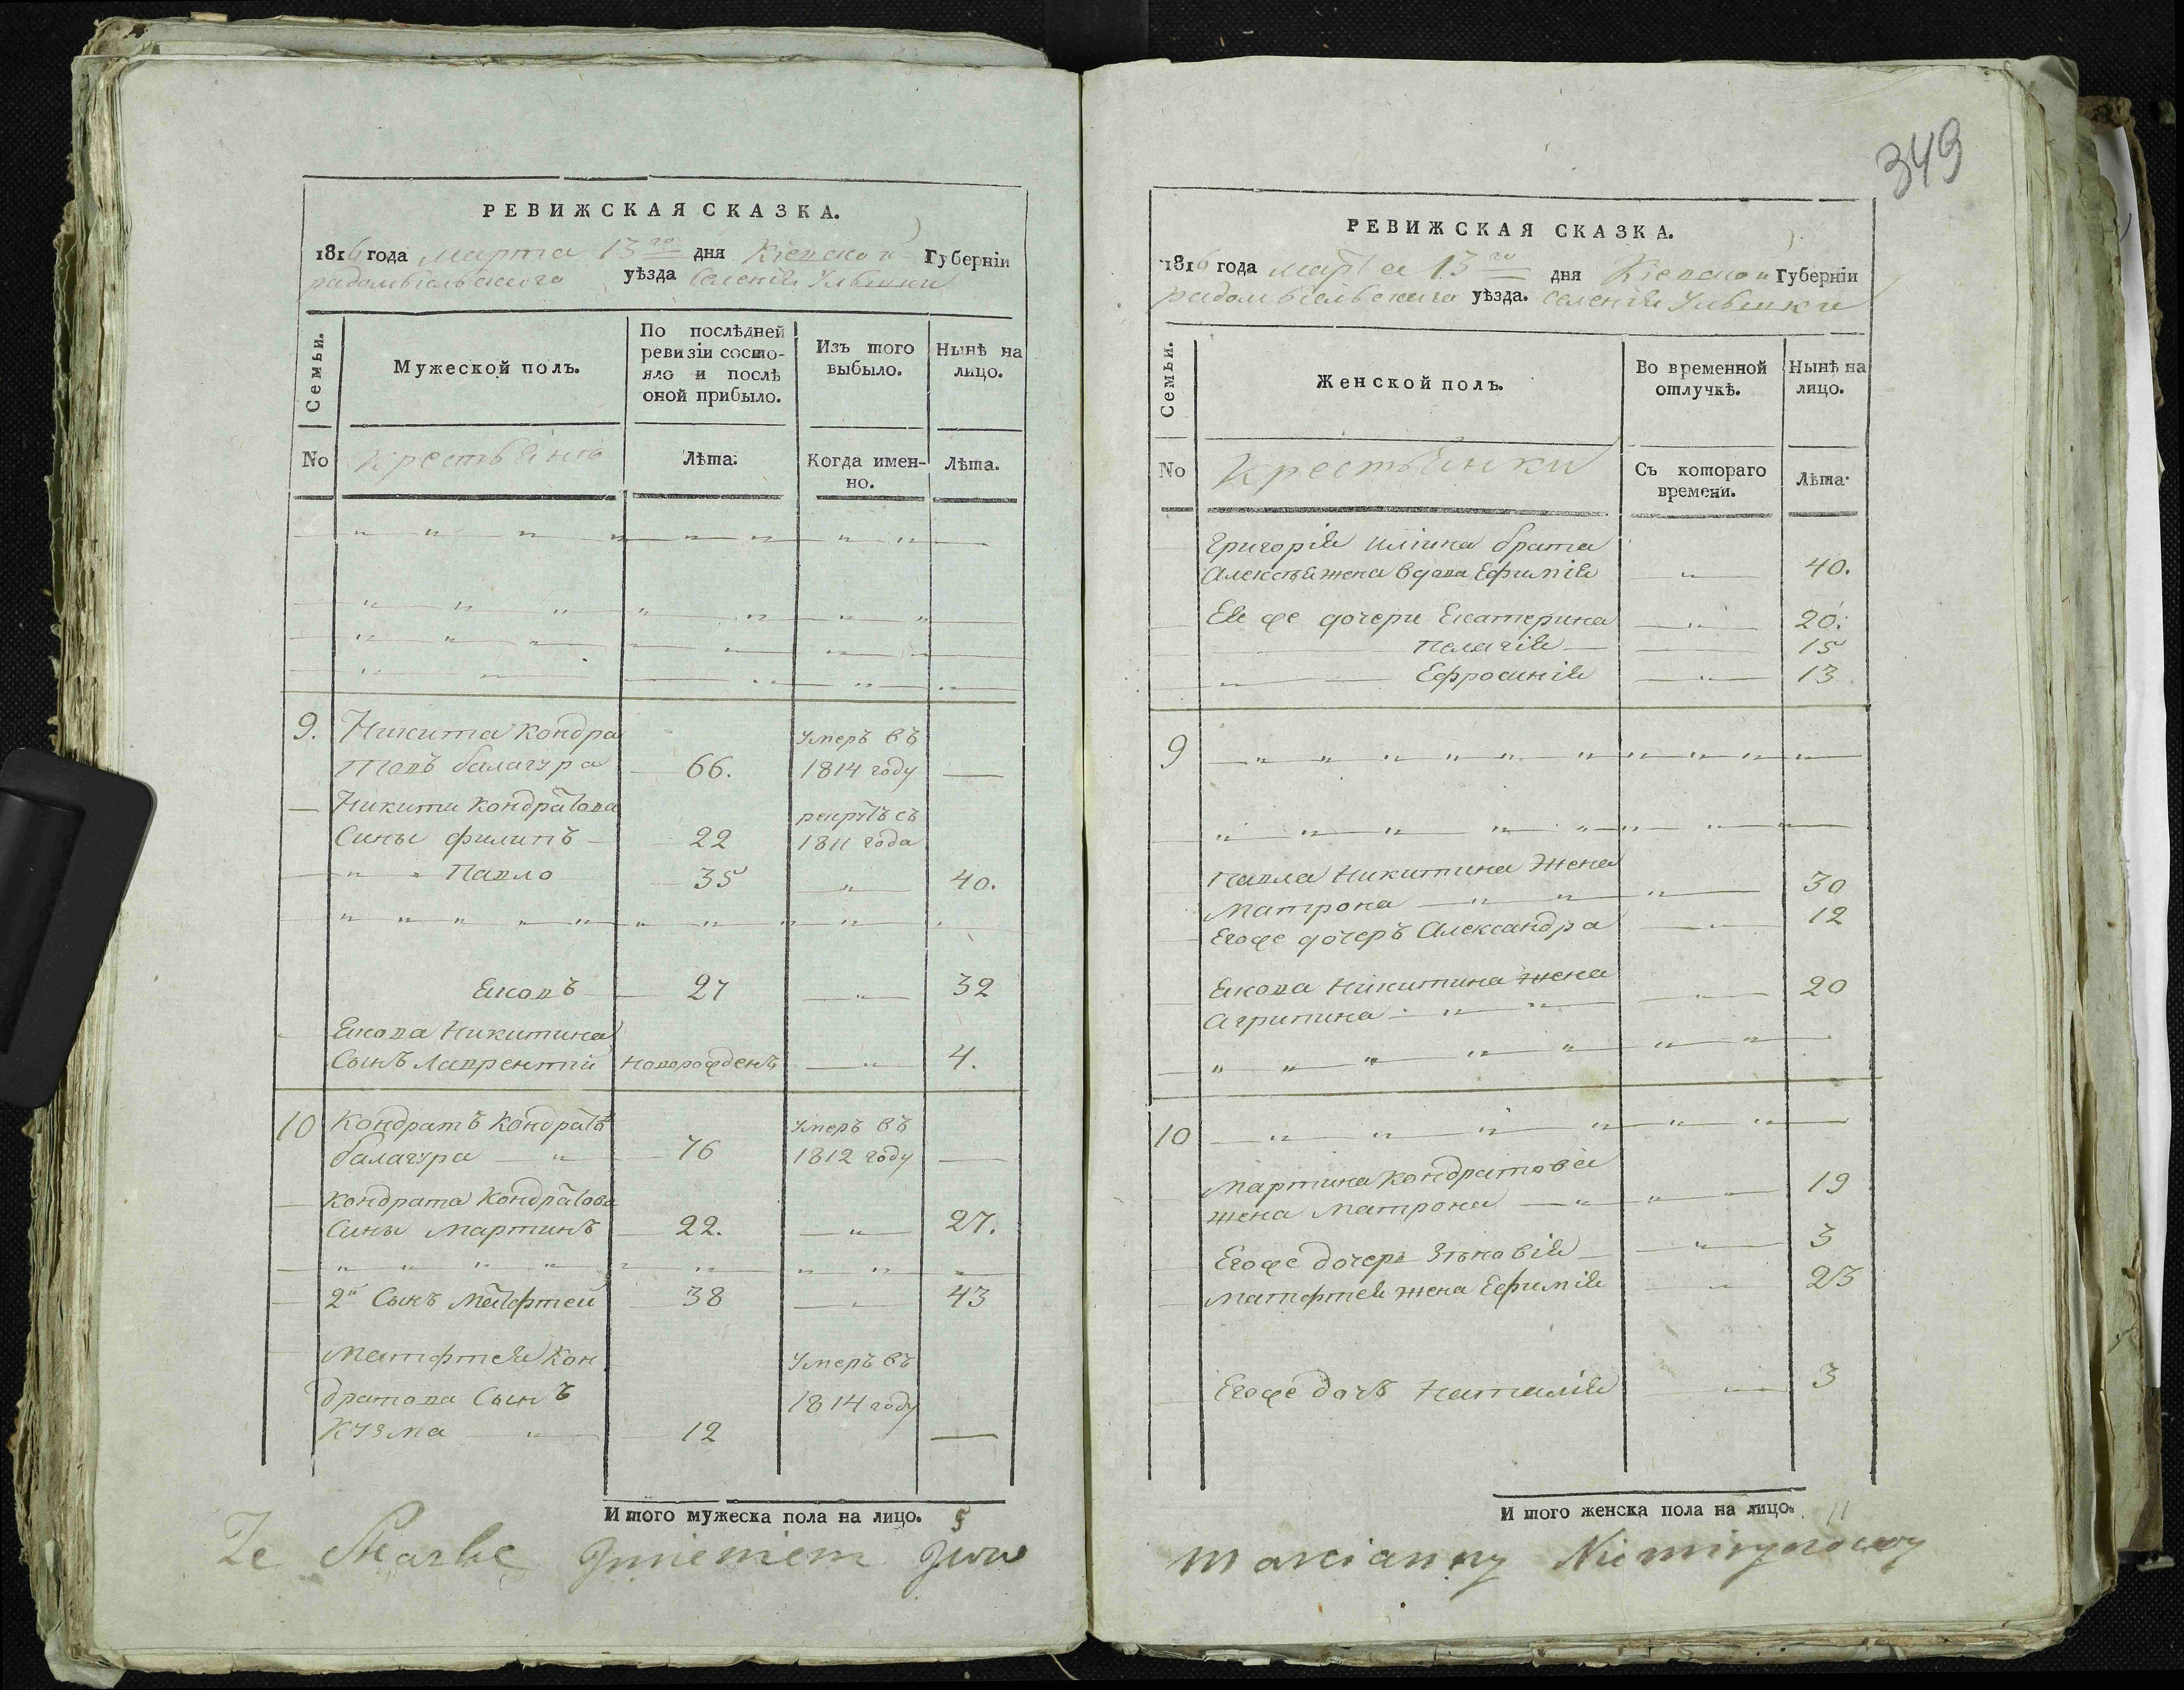 РЕВИЖСКАЯ СКАЗКА.
1816 года марта 13го дня Кіевской Губерніи
радомысльского уѣзда селенія
Семьи.
Мужеской полъ.
По послѣдней ревизіи состояло и послѣ оной прибыло.
Изъ того выбыло.
Нынѣ на лицо.
No Крестьянъ Лѣта: Когда именно. Лѣта.
9. Никита Кондра умеръ въ
товъ балагура 66. 1814 году —
Никити Кондратова рекрутъ съ
Сины филипъ 22 1811 года
" " Павло 35 " 40.
Яковъ 27 " 32
Якова Никитина
Сынъ Лаврентій новорожденъ " 4.
10 Кондратъ Кондратовъ умеръ въ
балагура " 76 1812 году —
Кондрата Кондратова
Сины Мартинъ 22. " 27.
2й Сынъ Матфтей 38 " 43
Матфтея Кон умеръ въ
дратова Сынъ 1814 году
Кузма " 12 —
Итого мужеска пола на лицо. 5
Ze
349
РЕВИЖСКАЯ СКАЗКА.
1816 года марта 13го дня Кіевской Губерніи
радомысльского уѣзда. селенія
Семьи.
Женской полъ.
Во временной отлучкѣ.
Нынѣ на лицо.
No Крестьянки Съ котораго времени. Лѣта.
Григорія Иліина брата
Алексѣя жена вдова Ефимія " 40.
Ея же дочери Екатерина " 20.
Пелагія 15
" Ефросинія " 13
9
Павла Никитина жена
Матрона " " " 30
Егоже дочеръ Александра " 12
Якова Никитина жена
Агрипина " " " 20
10
Мартина Кондратова
жена Матрона " " " 19
Егоже дочеръ Зѣновія " 3
Матфтея жена Ефимія " 23
Егоже дочъ Наталія " 3
Итого женска пола на лицо. 11
Marcianny